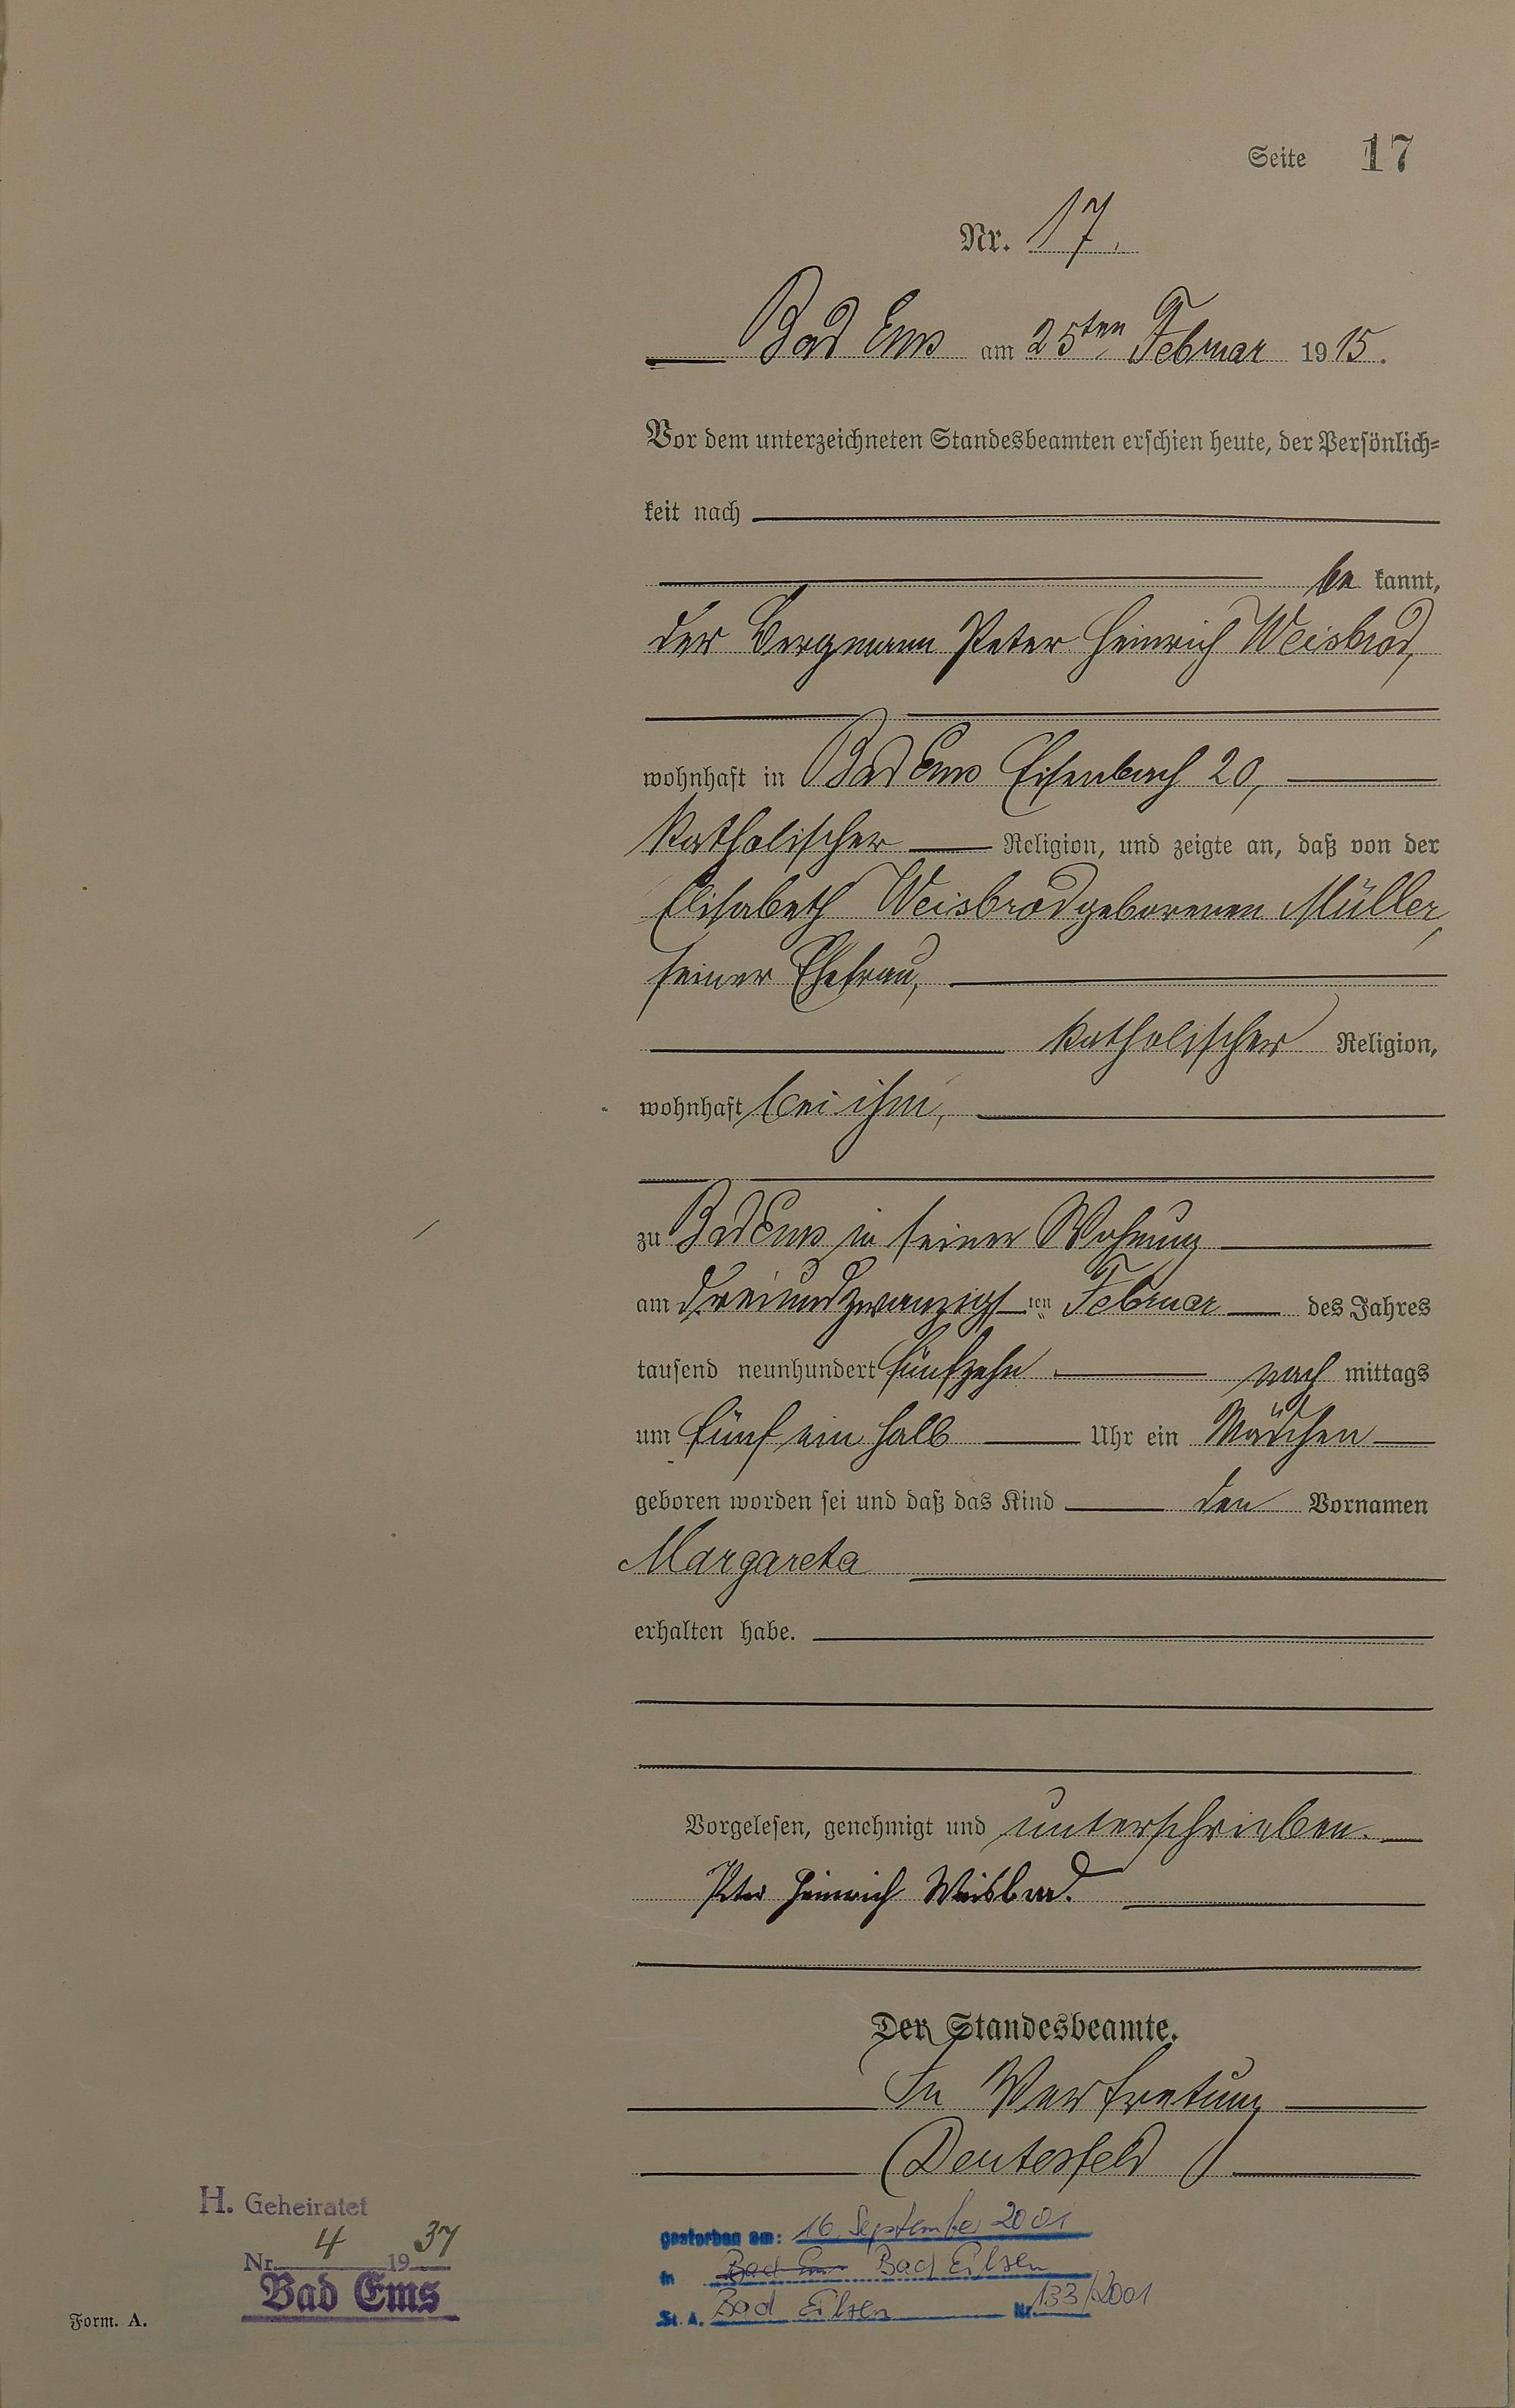 Seite 17
Nr. 17.
Bad Ems am 25ten Februar 1915.
Vor dem unterzeichneten Standesbeamten erschien heute, der Persönlich-
keit nach
be kannt,
der Bergmann Peter Heinrich Weisbrod,
wohnhaft in Bad Ems Eisenbach 20,
katholischer Religion, und zeigte an, daß von der
Elisabeth Weisbrod geborenen Müller,
seiner Ehefrau,
katholischer Religion,
wohnhaft bei ihm,
zu Bad Ems in seiner Wohnung
am dreiundzwanzigsten Februar des Jahres
tausend neunhundert fünfzehn nach mittags
um fünf ein halb Uhr ein Mädchen
geboren worden sei und daß das Kind den Vornamen
Margareta
erhalten habe.
Vorgelesen, genehmigt und unterschrieben.
Peter Heinrich Weisbrod.
Der Standesbeamte.
In Vertretung
Deutesfeld
H. Geheiratet
Nr. 4 1937
Bad Ems
gestorben am: 16. September 2001
in Bad Ems Bad Eilsen
St. A. Bad Eilsen Nr. 133/2001
Form. A.